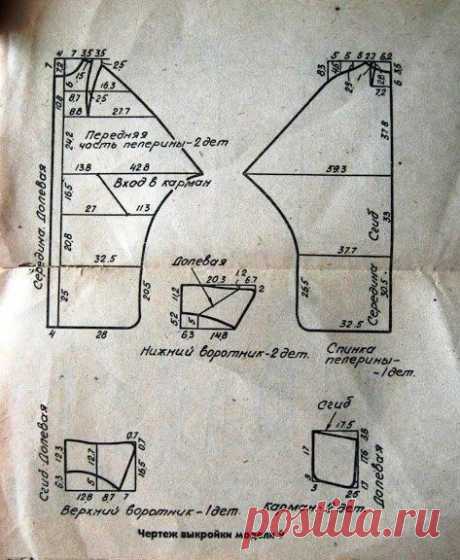 4 7 3.5 3.5
7 7.2 1.5 2.5
6 16.3
10.8 8.7 2.5
8.8 27.7
Передняя
часть пеперины-2 дет
24,2
13.8 42.8
Вход в карман
16,5
27 11.3
20,8
32.5
25 20,5
4 28
Середина. Долевая
5 5 8 2.7 6.2
8.3 4.5 3.5
2.5 2.8 6
7.2
37.8
59.3
33
Сгиб
37.7
25,5 30.5
Середина
32.5
Спинка
пеперины-
-1 дет.
Долевая
1.2
20.3 6.7
11,2 2
5.2 5
6.3 14.8
Нижний воротник-2 дет.
Сгиб-Долевая
0.7
12.3 12.7 0.7
16,5
6.3 5
12.8 8.7 7
Верхний воротник-1 дет.
Сгиб
17.5
3.8
17 17.6
3 2.5 1.7
Долевая
Карман-4 дет
Чертеж выкройки модели 9
postila.ru